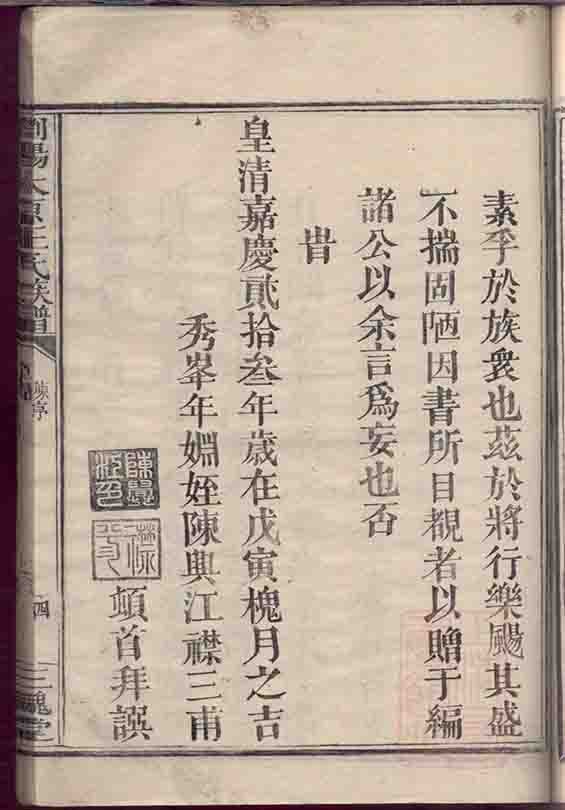 素孚於族衆也茲於將行樂颺其盛
不揣固陋因書所目覩者以贈于編
諸公以余言爲妄也否
旹
皇清嘉慶貳拾叁年歲在戊寅槐月之吉
秀峯年婣姪陳興江襟三甫
頓首拜譔
瀏陽太原王氏族譜
陳序
四
三槐堂